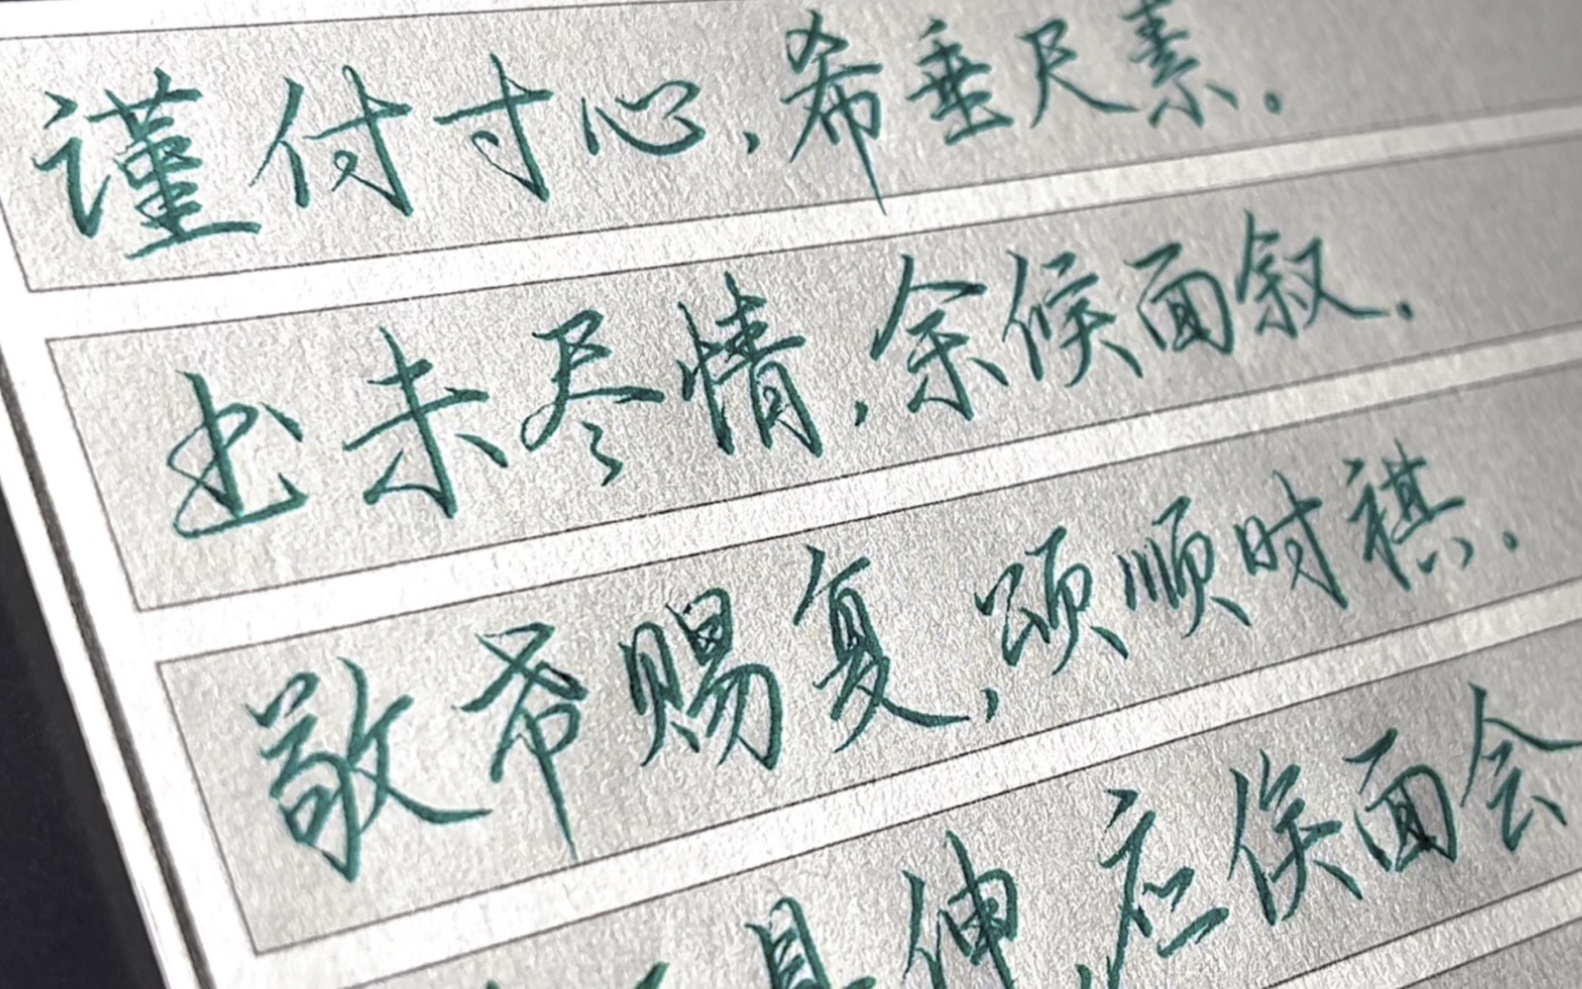 谨付寸心,希垂尺素。
书未尽情,余候面叙.
敬希赐复,颂顺时祺.
具伸,应侯面会